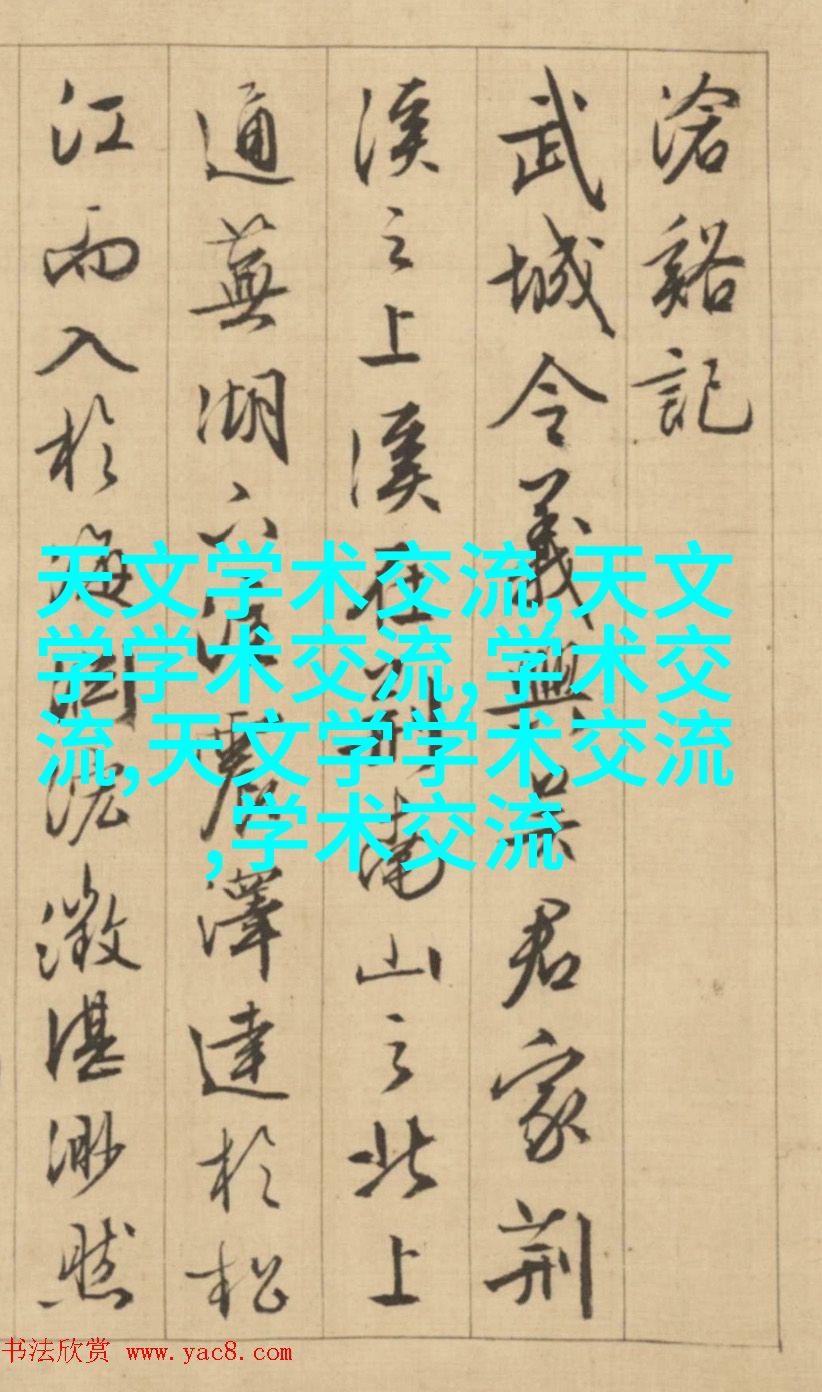 滄谿記
武城令義興吳君家荆
溪之上溪在荆南山之北上
通蕪湖下滙震澤達於松
江而入於海
澂湛渺然
天文学术交流,天文
学学术交流,学术交
流,天文学学术交流
,学术交流
书法欣赏 www.yac8.com